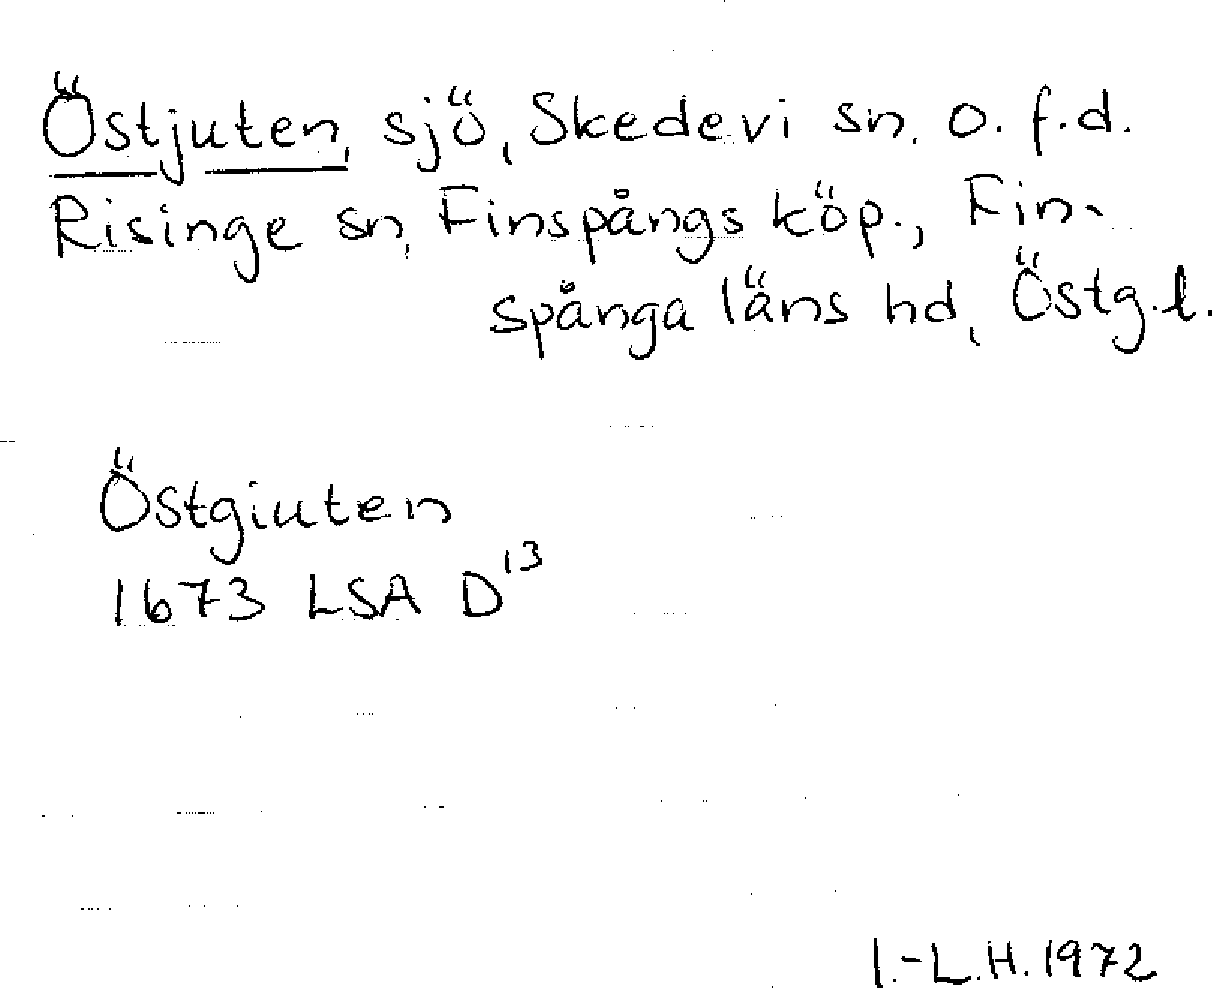 Östjuten, sjö, Skedevi sn. o. f.d.
Risinge sn, Finspångs köp., Fin-
spånga läns hd, Östg.l.
Östgiuten
1673 LSA D13
I.-L.H. 1972